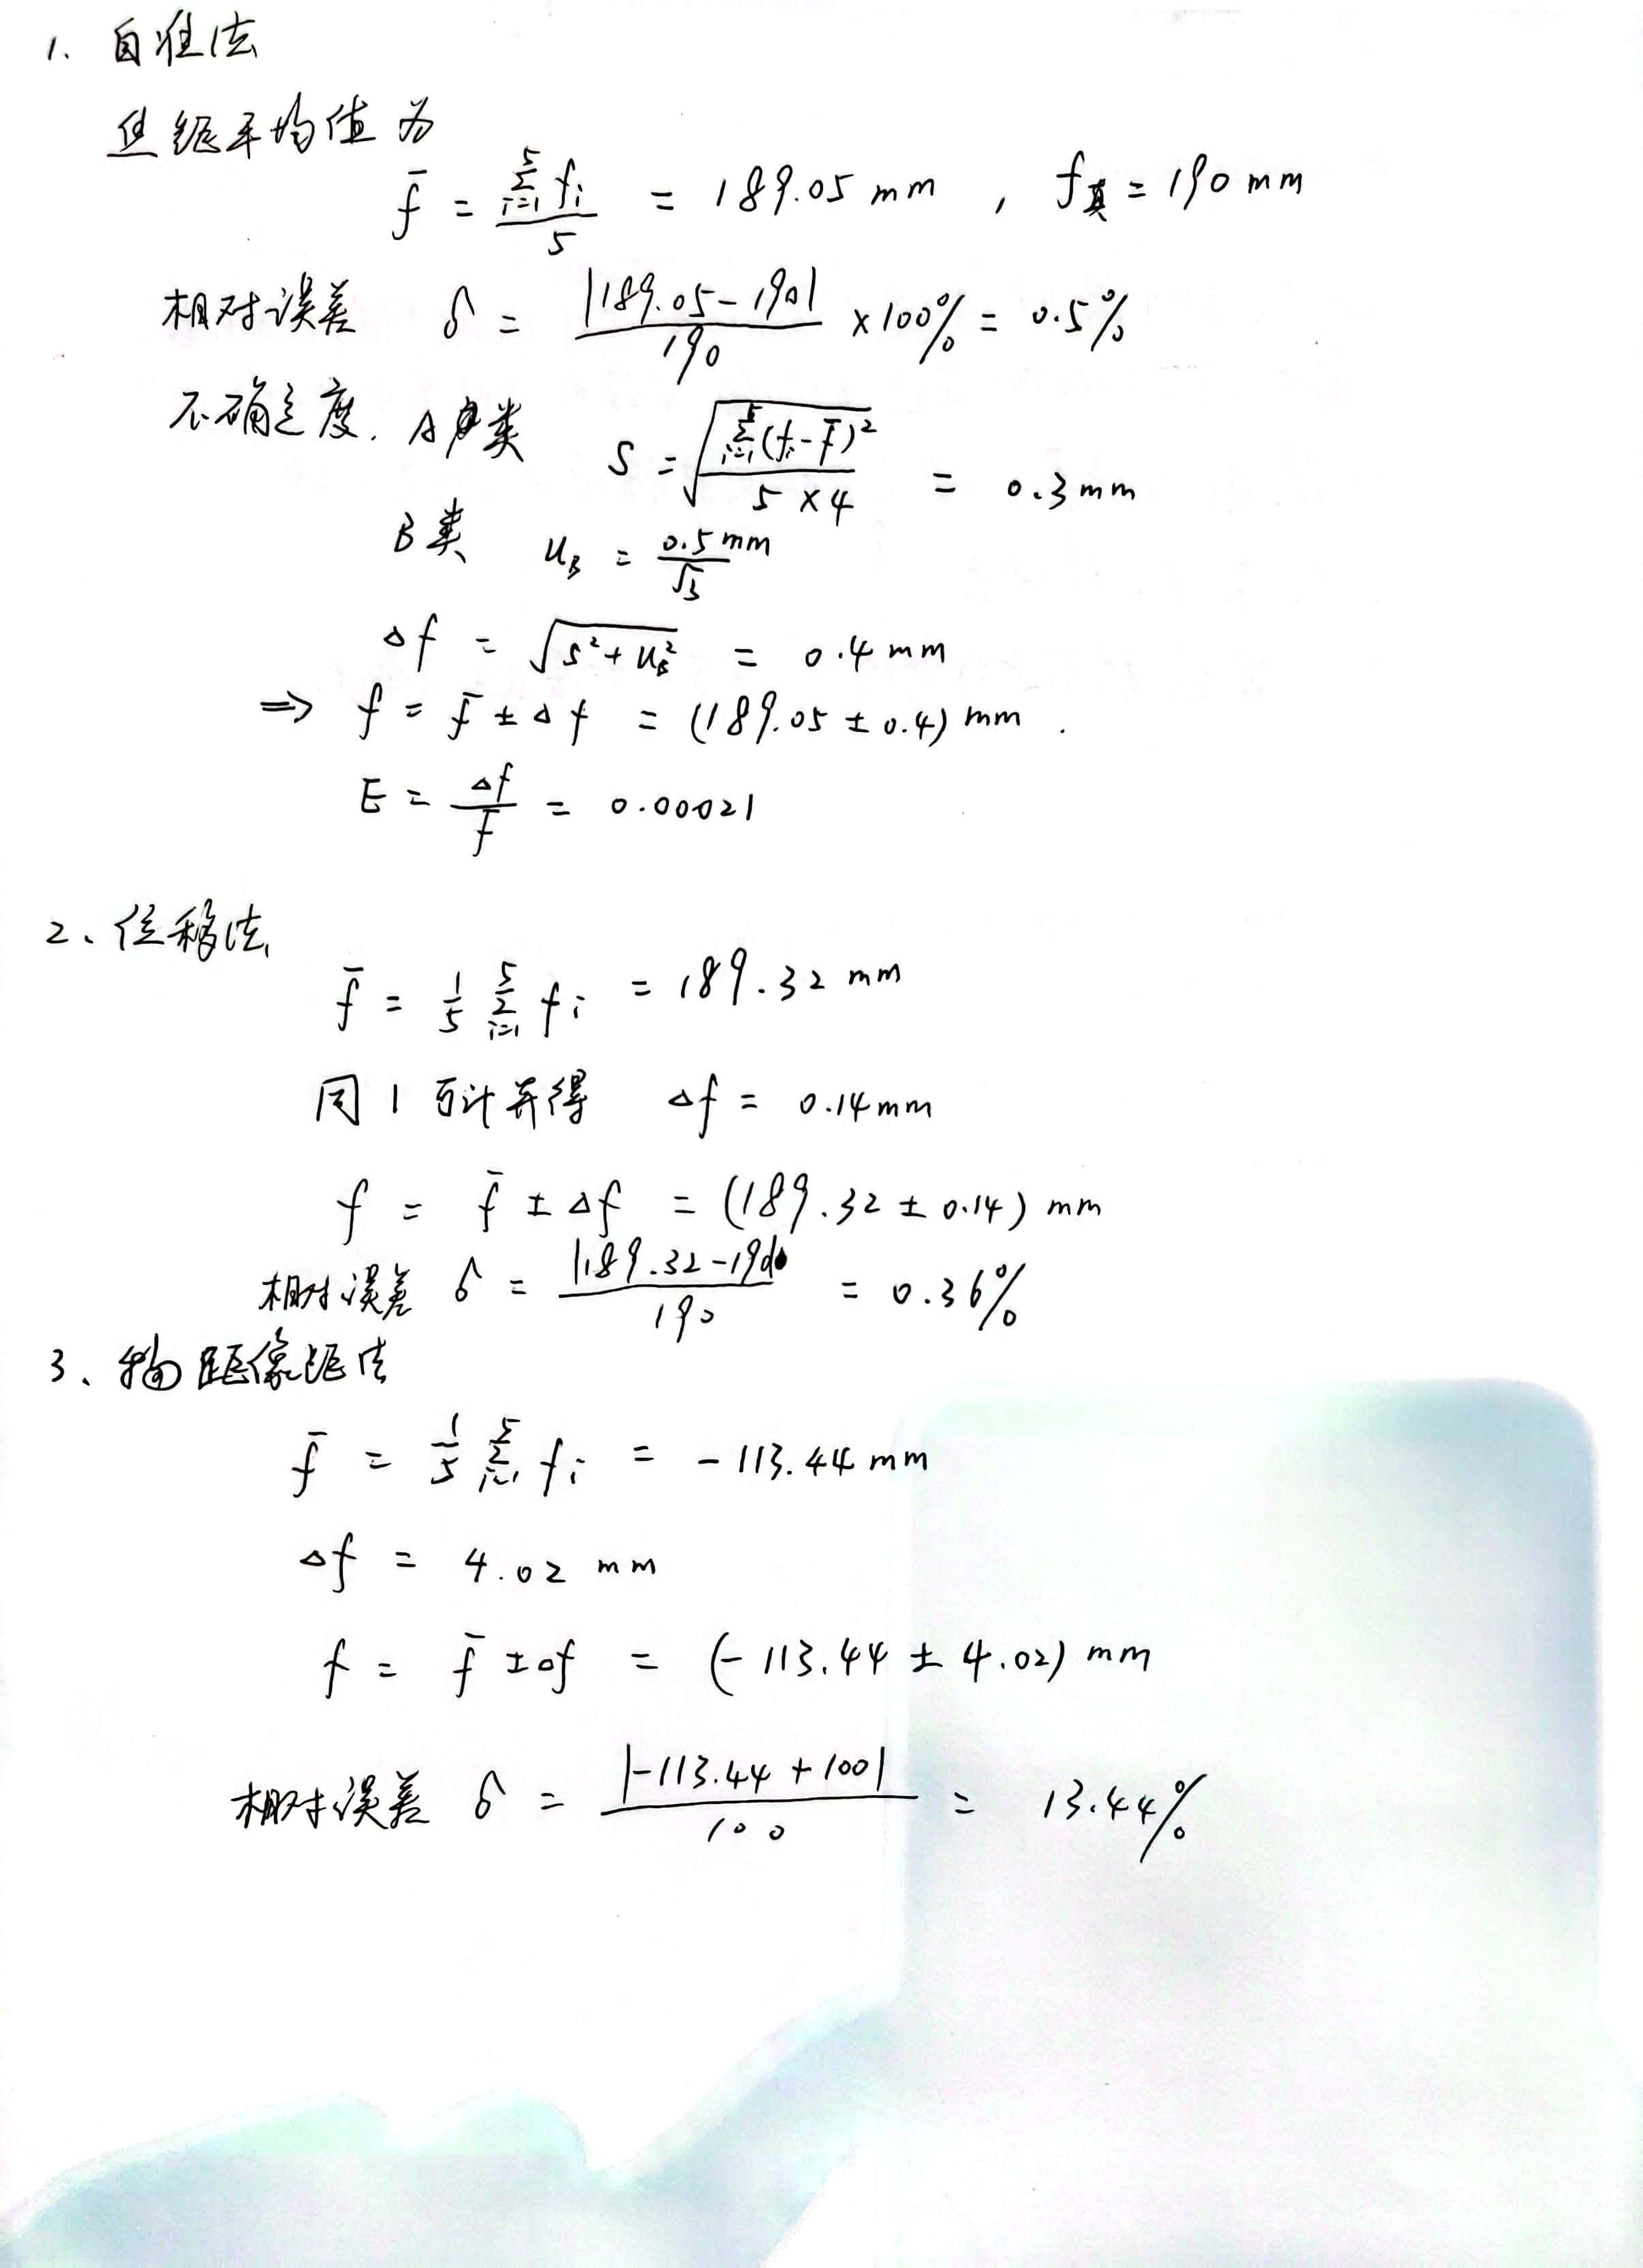 1、自准法
焦距平均值为
f̄ = \frac{\sum_{i=1}^{5} f_i}{5} = 189.05 mm , f真 = 190 mm
相对误差 δ = \frac{|189.05-190|}{190} ×100% = 0.5%
不确定度. A类 S = \sqrt{\frac{\sum_{i=1}^{5}(f_i-f̄)^2}{5×4}} = 0.3mm
B类 u_B = \frac{0.5mm}{\sqrt{3}}
Δf = \sqrt{S^2+u_B^2} = 0.4 mm
⇒ f = f̄ ± Δf = (189.05 ± 0.4) mm .
E = \frac{Δf}{f̄} = 0.00021
2、位移法
f̄ = \frac{1}{5} \sum_{i=1}^{5} f_i = 189.32 mm
同1可计算得 Δf = 0.14mm
f = f̄ ± Δf = (189.32 ± 0.14) mm
相对误差 δ = \frac{|189.32-190|}{190} = 0.36%
3、物距像距法
f̄ = \frac{1}{5} \sum_{i=1}^{5} f_i = -113.44 mm
Δf = 4.02 mm
f = f̄ ± Δf = (-113.44 ± 4.02) mm
相对误差 δ = \frac{|-113.44+100|}{100} = 13.44%